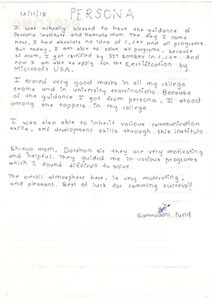 12/11/18
PERSONA
I was actually blessed to have the guidance of
Persona institute and Namrata mam. The day I came
here, I had absolute no idea of C, C++ and all programs.
But today, I am able to solve all programs, because
of mam, I got certified by IIT BOMBAY in C, C++. And
now I am able to apply for the Certification by
Microsoft USA.
I scored very good marks in all my college
exams and in university examinations. Because
of the guidance I got from persona, I stood
among the toppers in my college.
I was also able to inherit various communication
skills, self development skills through this institute.
Shreya mam, Darshan sir they are very motivating
and helpful. They guided me in various programs
which I found difficult to solve.
The overall atmosphere here, is very motivating,
and pleasant. Best of luck for comming success!!
Samruddhi Pund